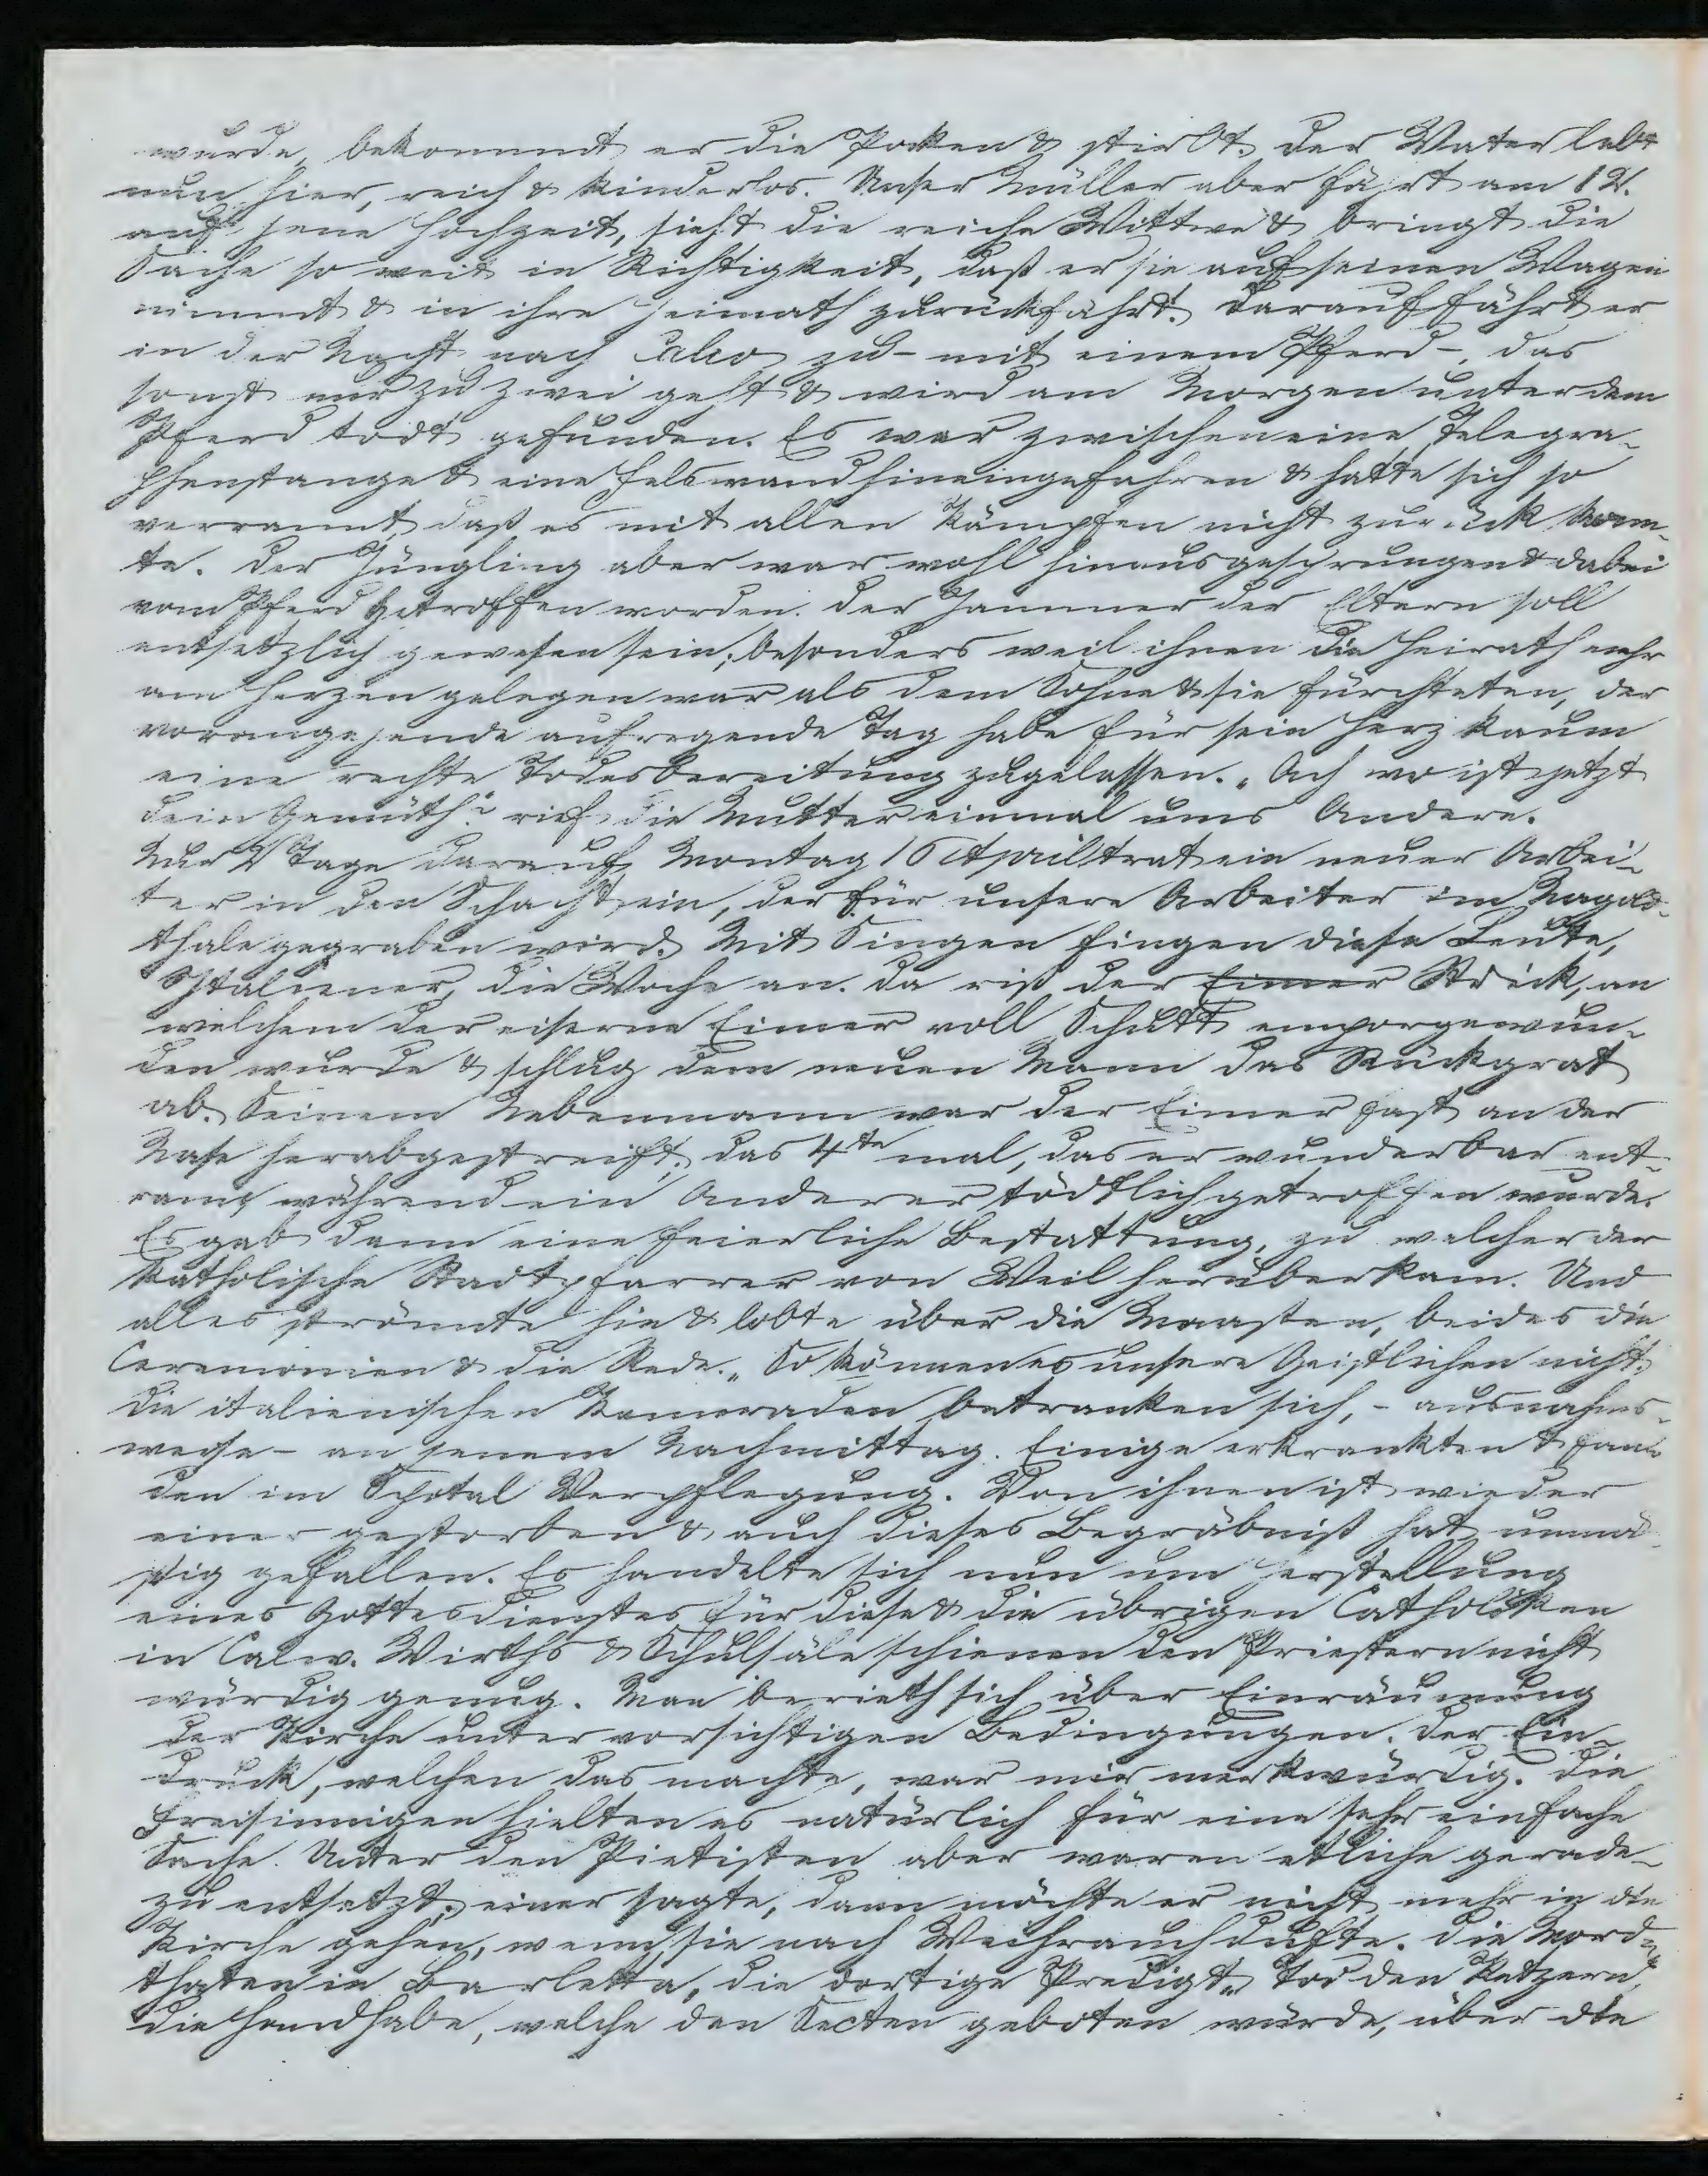 wurde, bekommt er die Pocken & stirbt. Der Vater lebt
nun hier, reich & kinderlos. Unser Müller aber fährt am 12.
auf jene Hochzeit, sieht die reiche Wittwe & bringt die
Sache so weit in Richtigkeit, daß er sie auf seinen Wagen
nimmt & in ihre Heimath zurückfährt. Darauf fährt er
in der Nacht nach Calw zu - mit einem Pferd -, das
sonst nur zu zwei geht & wird am Morgen unter dem
Pferd todt gefunden. Es war zwischen eine Telegra-
phenstange & eine Felswand hineingefahren & hatte sich so
verrannt, daß es mit allem Kämpfen nicht zurück konn-
te. Der Jüngling aber war wohl hinausgesprungen & dabei
vom Pferd getroffen worden. Der Jammer der Eltern soll
entsetzlich gewesen sein, besonders weil ihnen die Heirath mehr
am Herzen gelegen war als dem Sohne & sie fürchteten, der
vorangehende aufregende Tag habe für sein Herz kaum
eine rechte Todesbereitung zugelassen. „Ach wo ist jetzt
dein Gemüth“ rief die Mutter einmal ums Andere.
Nur 2 Tage darauf, Montag 16 April trat ein neuer Arbei-
ter in den Schacht ein, der für unsere Arbeiter im Nagold-
thale gegraben wird. Mit Singen fingen diese Leute,
Italiener, die Woche an. Da riß der Eimer Strick, an
welchem der eiserne Eimer voll Schutt emporgewun-
den wurde & schlug dem neuen Mann das Rückgrat
ab. Seinem Nebenmann war der Eimer fast an der
Nase herabgestreift, das 4te mal, das er wunderbar ent-
rann, während ein Anderer tödtlich getroffen wurde.
Es gab dann eine feierliche Bestattung, zu welcher der
katholische Stadtpfarrer von Weil herüberkam. Und
alles strömte hin & lobte über die Maaßen, beides die
Ceremonien & die Rede. „So können es unsere Geistlichen nicht.
Die italienischen Kameraden betranken sich, - ausnahms-
weise - an jenem Nachmittag. Einige erkrankten & fan-
den im Spital Verpflegung. Von ihnen ist wieder
einer gestorben & auch dieses Begräbniß hat unmä-
ßig gefallen. Es handelte sich nun um Herstellung
eines Gottesdienstes für diese & die übrigen Catholiken
in Calw. Wirths & Schulsäle schienen den Priestern nicht
würdig genug. Man berieth sich über Einräumung
der Kirche unter vorsichtigen Bedingungen. Der Ein-
druck, welchen das machte, war mir merkwürdig. Die
Freisinnigen hielten es natürlich für eine sehr einfache
Sache. Unter den Pietisten aber waren etliche gerade-
zu entsetzt; einer sagte, dann möchte er nicht mehr in die
Kirche gehen, wenn sie nach Weihrauch dufte. Die Mord-
thaten in Barletta, die dortige Predigt „Tod den Ketzern“,
die Handhabe, welche den Secten geboten würde, über die